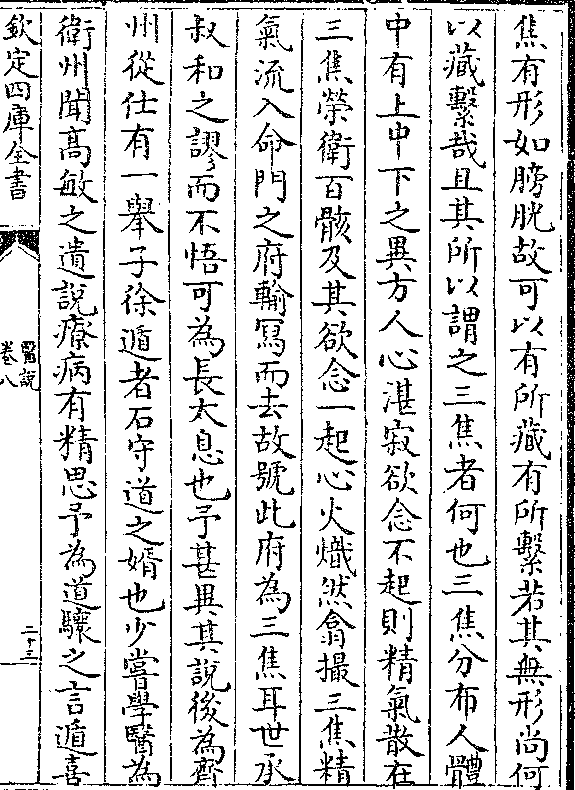 焦有形如膀胱故可以有所藏有所繫若其無形尚何
以藏繫哉且其所以謂之三焦者何也三焦分布人體
中有上中下之異方人心湛寂欲念不起則精氣散在
三焦榮衛百骸及其欲念一起心火熾然翕撮三焦精
氣流入命門之府輸寫而去故號此府為三焦耳世承
叔和之謬而不悟可為長太息也予甚異其說後為齊
州從仕有一舉子徐遁者石守道之婿也少嘗學醫為
衛州聞高敏之遺說療病有精思予為道驤之言遁喜
欽定四庫全書
醫說
卷八
二十三